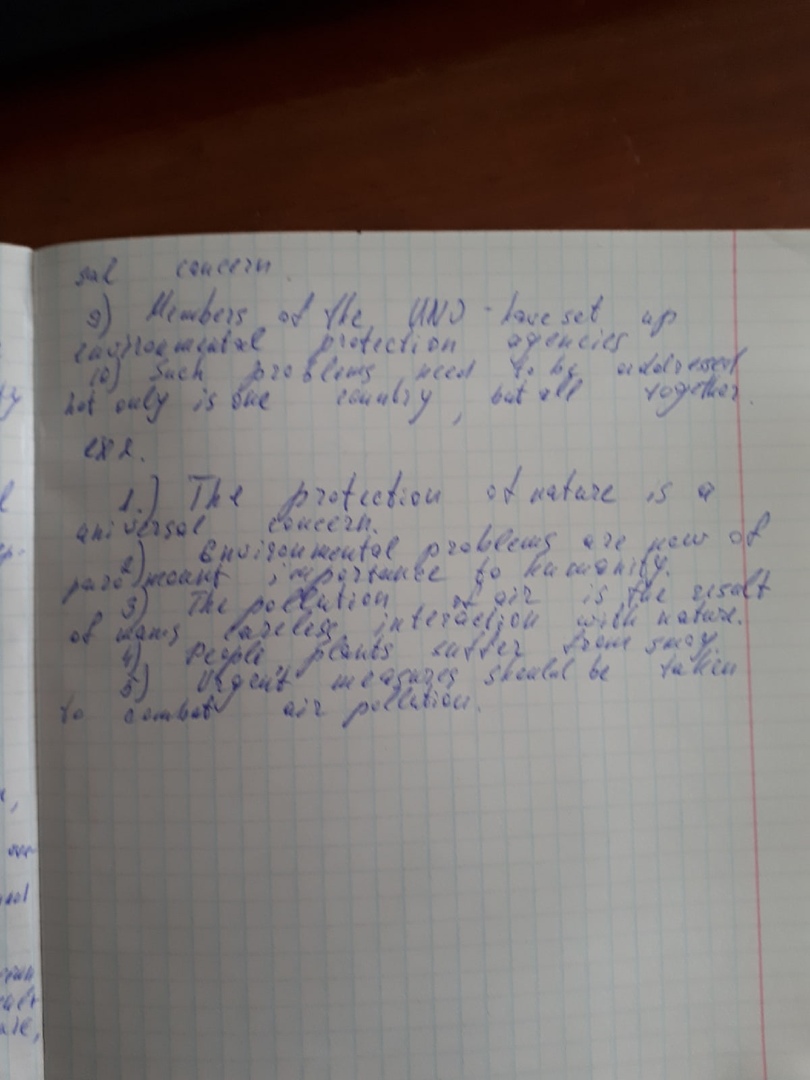 sal concern.
9) Members of the UNO have set up
environmental protection agencies
10) Such problems need to be addressed
not only is one country, but all together.
ex 2.
1.) The protection of nature is a
universal concern.
2) Environmental problems are now of
paramount importance to humanity.
3) The pollution of air is the result
of mans careless interaction with nature.
4) People plants suffer from smog.
5) Urgent measures should be taken
to combat air pollution.